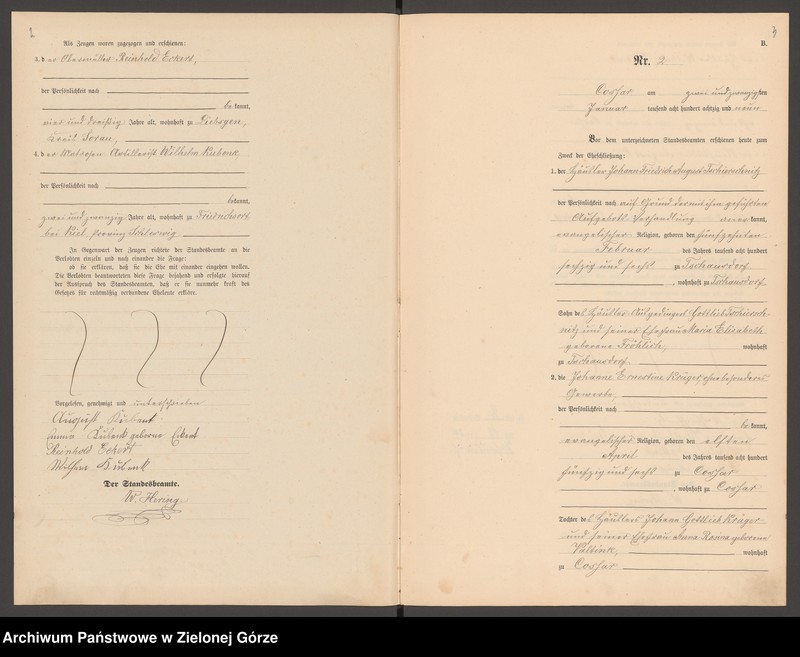 2
Als Zeugen waren zugezogen und erschienen:
3. der Glasmüller Reinhold Eckert,
der Persönlichkeit nach
bekannt,
vier und dreißig Jahre alt, wohnhaft zu Liebsgen,
Kreis Sorau,
4. der Matrosen-Artillerist Wilhelm Kubenk
der Persönlichkeit nach
bekannt,
zwei und zwanzig Jahre alt, wohnhaft zu Friedrichsort
bei Kiel, Provinz Schleswig
In Gegenwart der Zeugen richtete der Standesbeamte an die
Verlobten einzeln und nach einander die Frage:
ob sie erklären, daß sie die Ehe mit einander eingehen wollen.
Die Verlobten beantworteten diese Frage bejahend und erfolgte hierauf
der Ausspruch des Standesbeamten, daß er sie nunmehr kraft des
Gesetzes für rechtmäßig verbundene Eheleute erkläre.
Vorgelesen, genehmigt und unterschrieben
August Kubenk
Anna Kubenk geborene Eckert
Reinhold Eckert
Wilhelm Kubenk
Der Standesbeamte.
W. Hering.
3
B.
Nr. 2
Cossar am zwei und zwanzigsten
Januar tausend acht hundert achtzig und neun
Vor dem unterzeichneten Standesbeamten erschienen heute zum
Zweck der Eheschließung:
1. der Häusler Johann Friedrich August
der Persönlichkeit nach auf Grund der mit ihm geführten
Aufgebots Verhandlung anerkannt,
evangelischer Religion, geboren den fünfzehnten
Februar des Jahres tausend acht hundert
sechzig und sechs zu Tschausdorf
, wohnhaft zu Tschausdorf
Sohn des Häusler-Ausgedingers Gottlieb
und seiner Ehefrau Maria Elisabeth
geborene Fröhlich, wohnhaft
zu Tschausdorf
2. die Johanne Ernestine Krüger, ohne besonderes
Gewerbe,
der Persönlichkeit nach
bekannt,
evangelischer Religion, geboren den elften
April des Jahres tausend acht hundert
fünfzig und sechs zu Cossar
, wohnhaft zu Cossar
Tochter des Häuslers Johann Gottlieb Krüger
und seiner Ehefrau Anna Rosina geborene
wohnhaft
zu Cossar
Archiwum Państwowe w Zielonej Górze